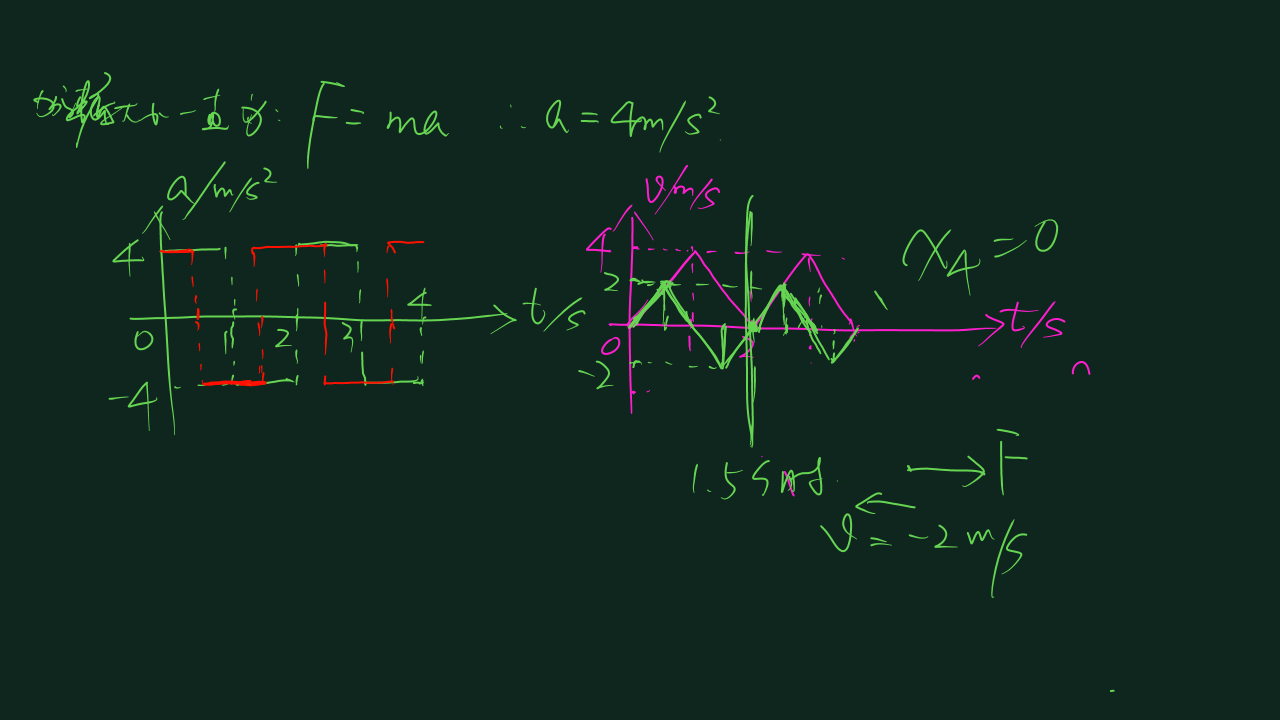 大小一直为: F = ma ∴ a = 4m/s²
a/m/s²
4
0 1 2 3 4 t/s
-4
v/m/s
4
2
0 2 t/s
-2
x₄ = 0
1.5s时
F
v = -2m/s